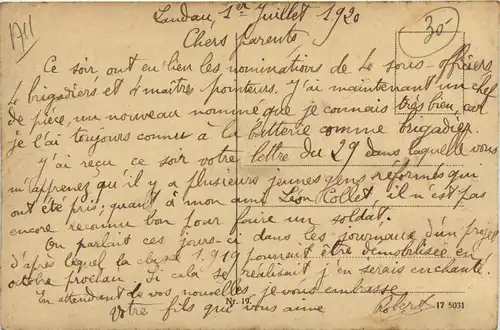 1711
Landau, 1er Juillet 1920
30-
Chers parents
Ce soir, ont eu lieu les nominations de 4 sous-officiers,
4 brigadiers et 2 maîtres pointeurs. J'ai maintenant un chef
de pièce, un nouveau nommé que je connais très bien, car
je l'ai toujours connu à la batterie comme brigadier.
J'ai reçu ce soir votre lettre du 29 dans laquelle vous
m'apprenez qu'il y a plusieurs jeunes gens réformés qui
ont été pris; quant à mon ami Léon Collet il n'est pas
encore reconnu bon pour faire un soldat.
On parlait ces jours-ci dans les journaux d'un projet
d'après lequel la classe 1919 pourrait être démobilisée en
octobre prochain. Si cela se réalisait j'en serais enchanté.
En attendant de vos nouvelles, je vous embrasse
Votre fils qui vous aime
Robert
Nr. 19.
17 5031